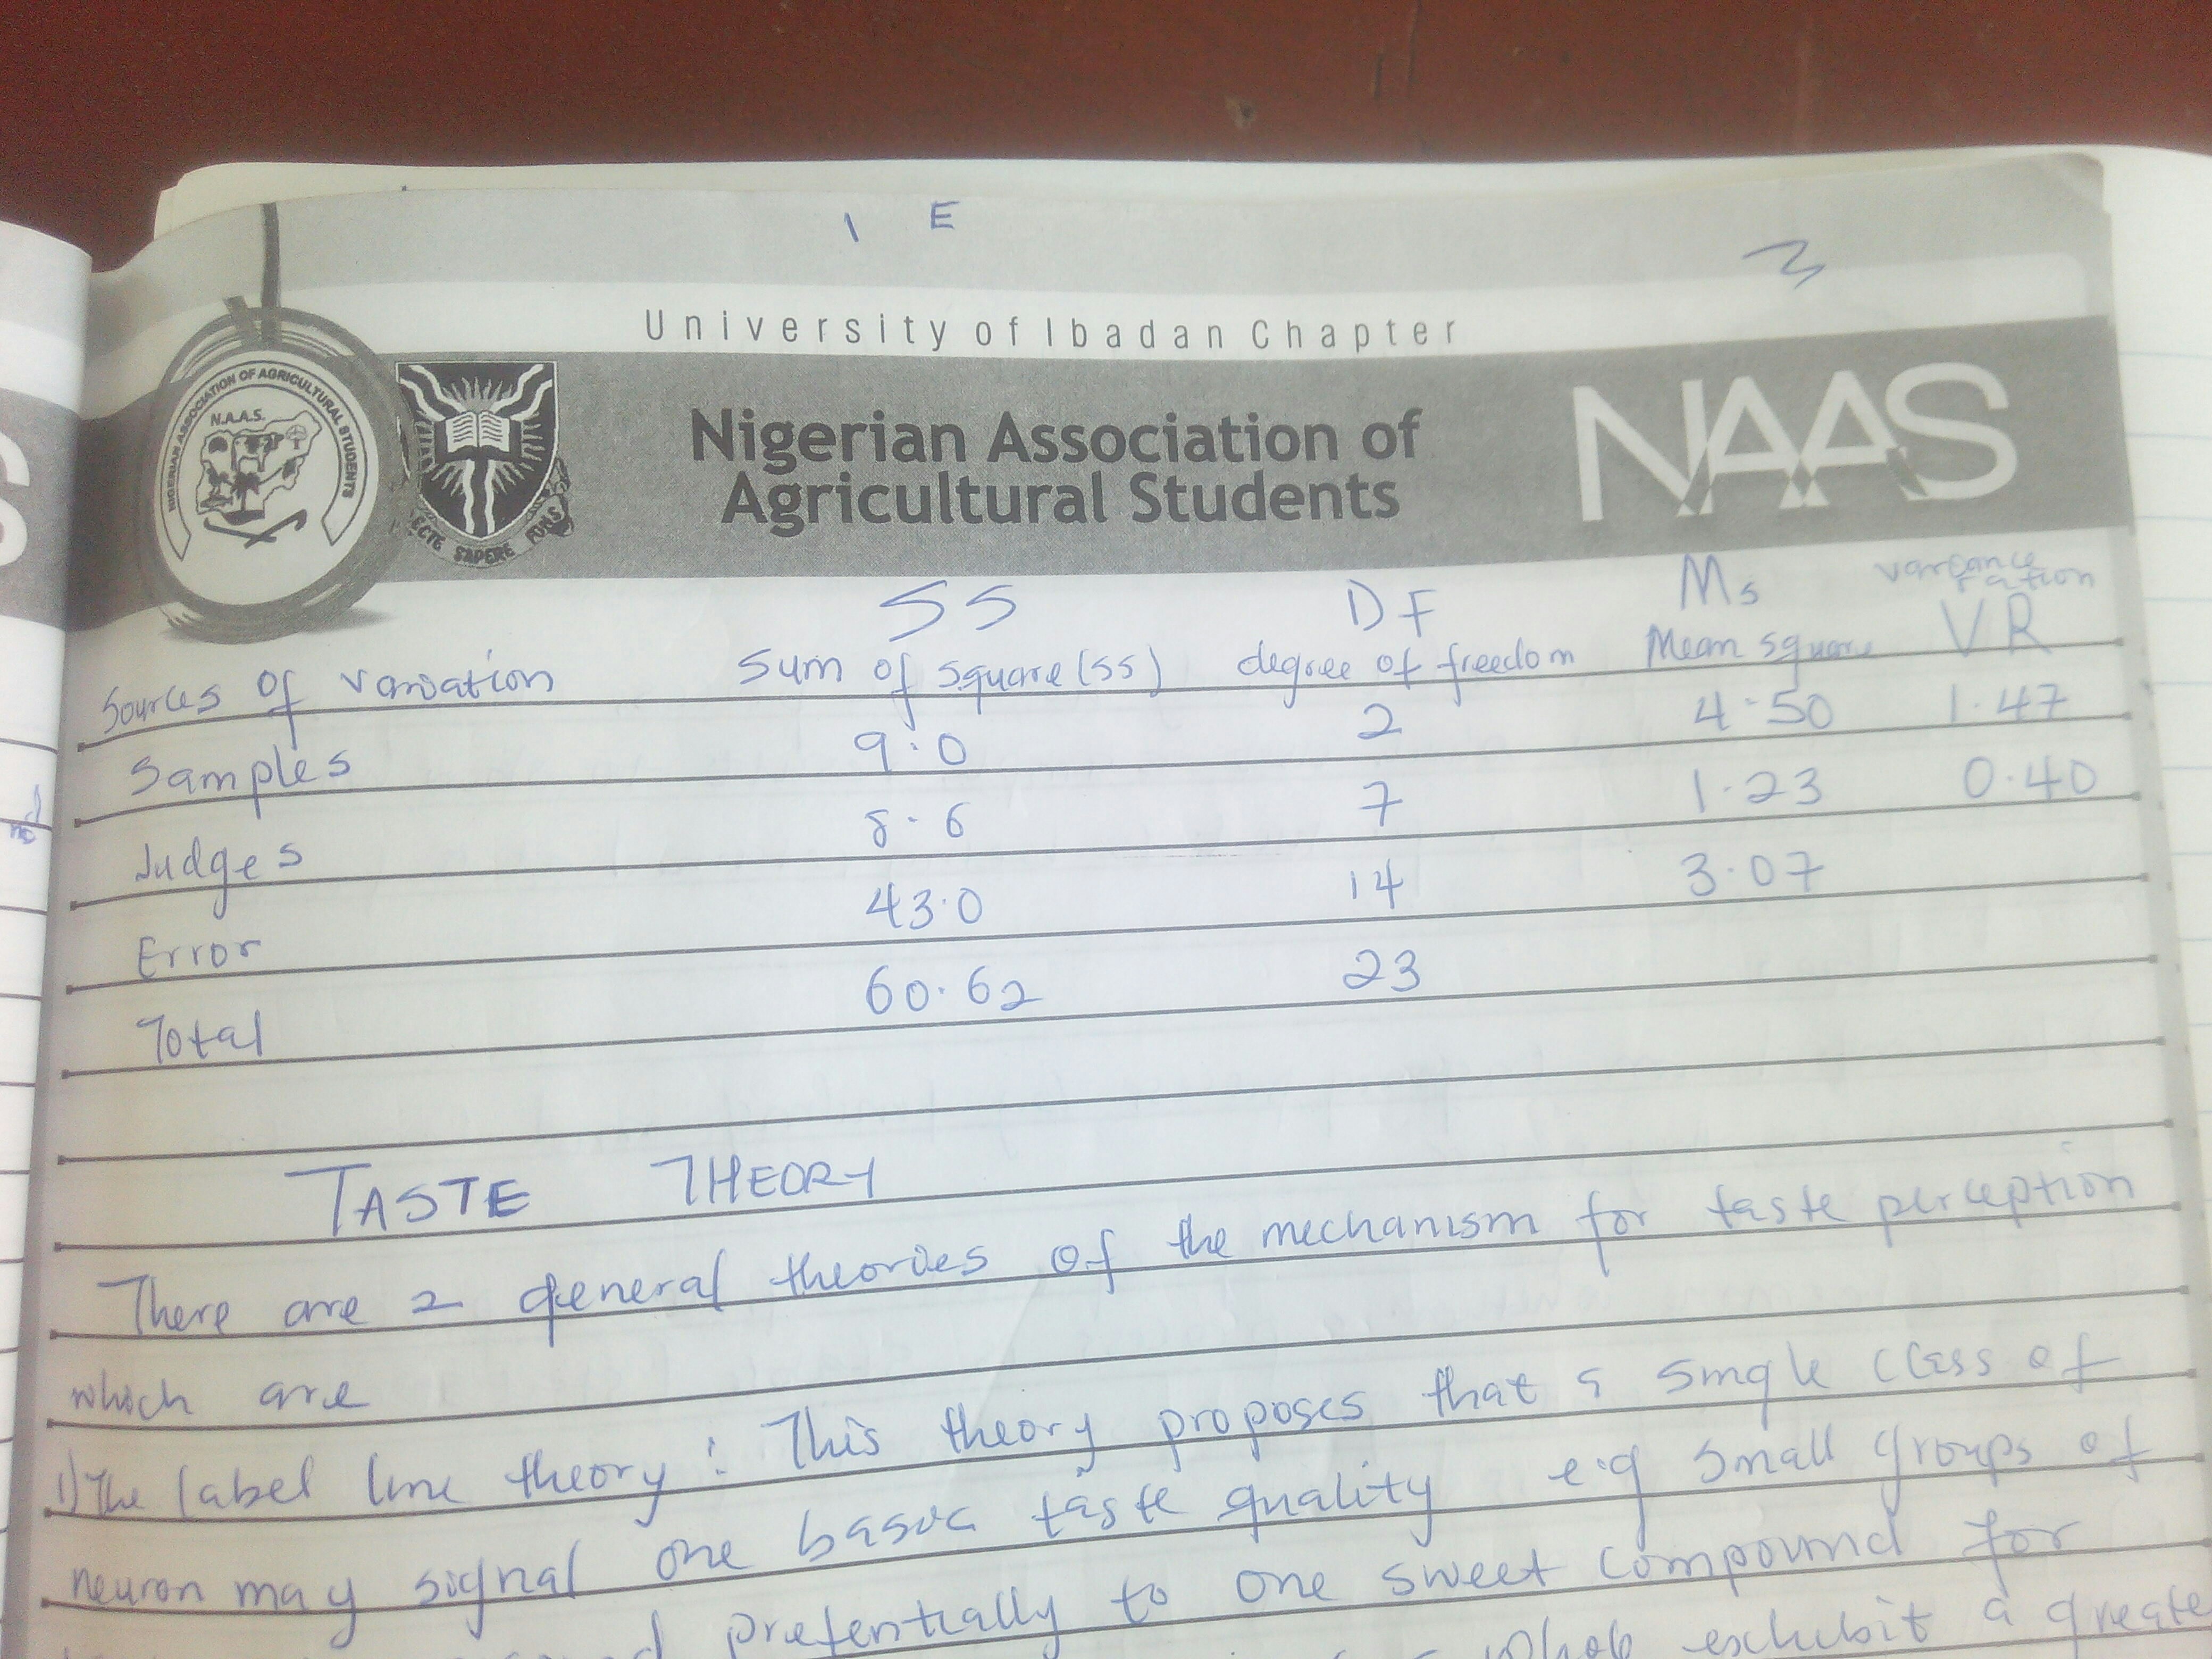 1 E
3
University of Ibadan Chapter
NIGERIAN ASSOCIATION OF AGRICULTURAL STUDENTS
N.A.A.S.
RECTE SAPERE FONS
Nigerian Association of
Agricultural Students
NAAS
SS DF Ms variance ration
Sources of variation Sum of square (SS) degree of freedom Mean square VR
Samples 9.0 2 4.50 1.47
Judges 8.6 7 1.23 0.40
Error 43.0 14 3.07
Total 60.62 23
TASTE THEORY
There are 2 general theories of the mechanism for taste perception
which are
1) The label line theory: This theory proposes that a single class of
neuron may signal one basic taste quality e.g small groups of
prefentially to one sweet compound for
exhibit a greate